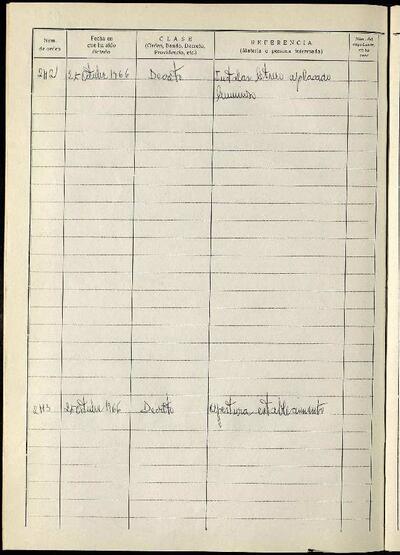 Núm. de orden
Fecha en que ha sido dictado
CLASE
(Orden, Bando, Decreto, Providencia, etc.)
REFERENCIA
(Materia o persona interesada)
2112 2 octubre 1966 Decreto Instalar letrero aplacado
luminoso
2113 2 octubre 1966 Decreto apertura establecimiento